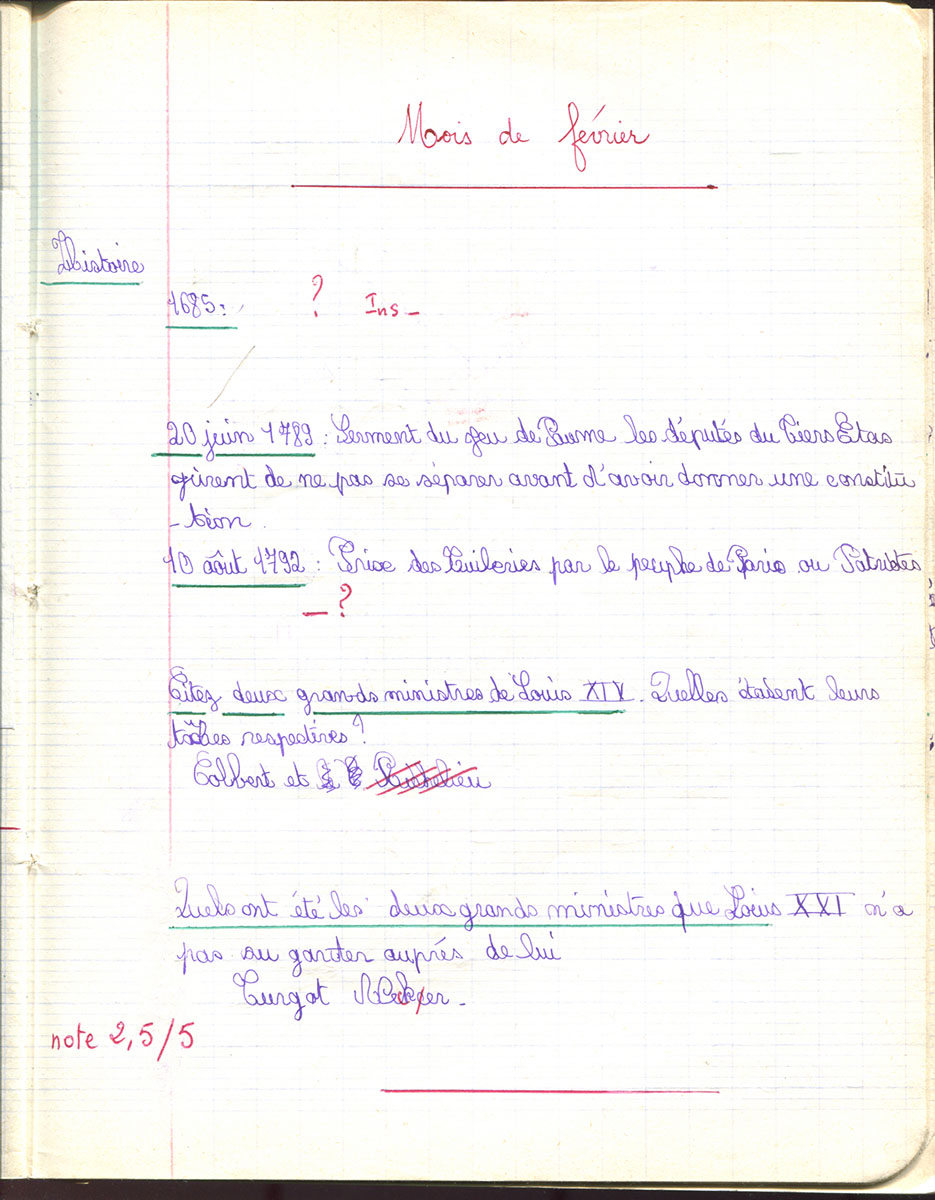 Mois de février
Histoire
1685 : ? Ins -
20 juin 1789 : Serment du jeu de Paume les députés du Tiers Etas
jûrent de ne pas se séparer avant d'avoir donner une constitu
- tion.
10 août 1792 : Prise des Tuileries par le peuple de Paris ou Patriotes
- ?
Citez deux grands ministres de Louis XIV. Quelles étaient leurs
tâches respectives ?
Colbert et Richelieu
Quels ont été les deux grands ministres que Loius XXI n'a
pas su garder auprés de lui
Turgot Necker -
note 2,5/5